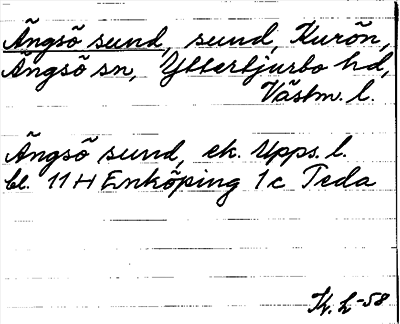 Ängsö sund, sund, Kurön,
Ängsö sn, Yttertjurbo hd,
Västm. l.
Ängsö sund, ek. Upps. l.
bl. 11 H Enköping 1c Teda
K. L -58